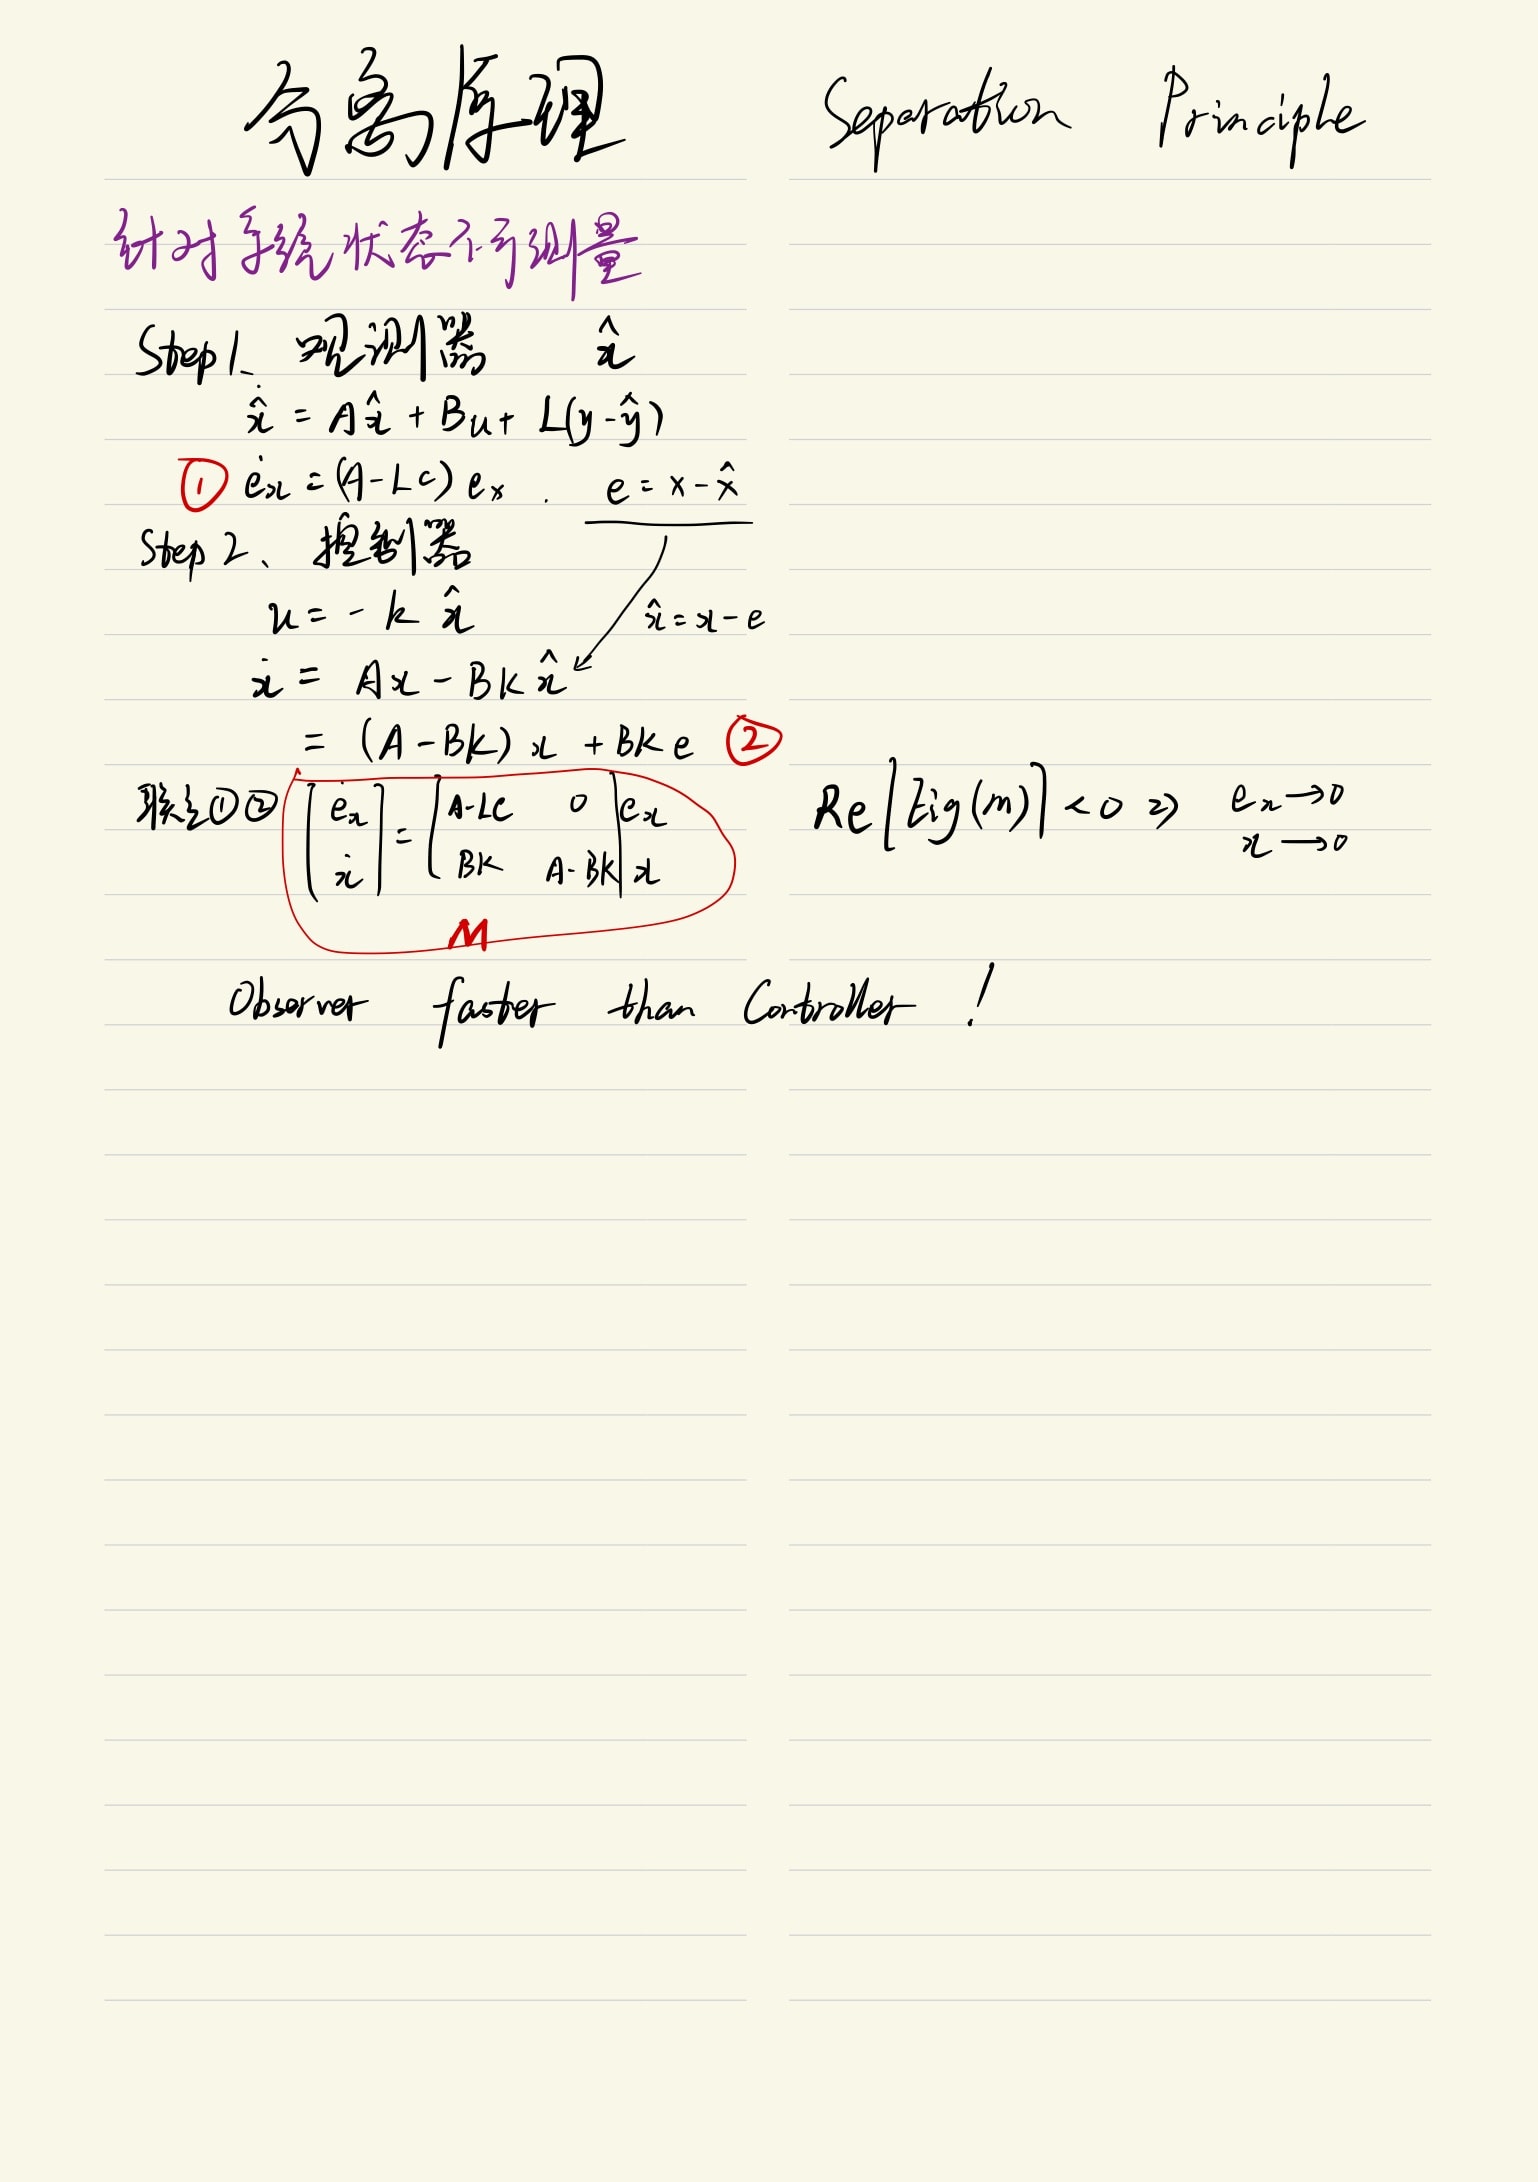 分离原理 Separation Principle
针对系统状态不可测量
Step 1、观测器 x̂
x̂̇ = Ax̂ + Bu + L(y-ŷ)
① ėx = (A-LC) ex . e = x - x̂
Step 2、控制器
u = - k x̂ x̂ = x - e
ẋ = Ax - BK x̂
= (A-BK) x + BK e ②
联立①② [ėx] = [A-LC 0] ex Re[Eig(m)] < 0 => ex → 0
[ẋ] [BK A-BK] x x → 0
M
Observer faster than Controller !